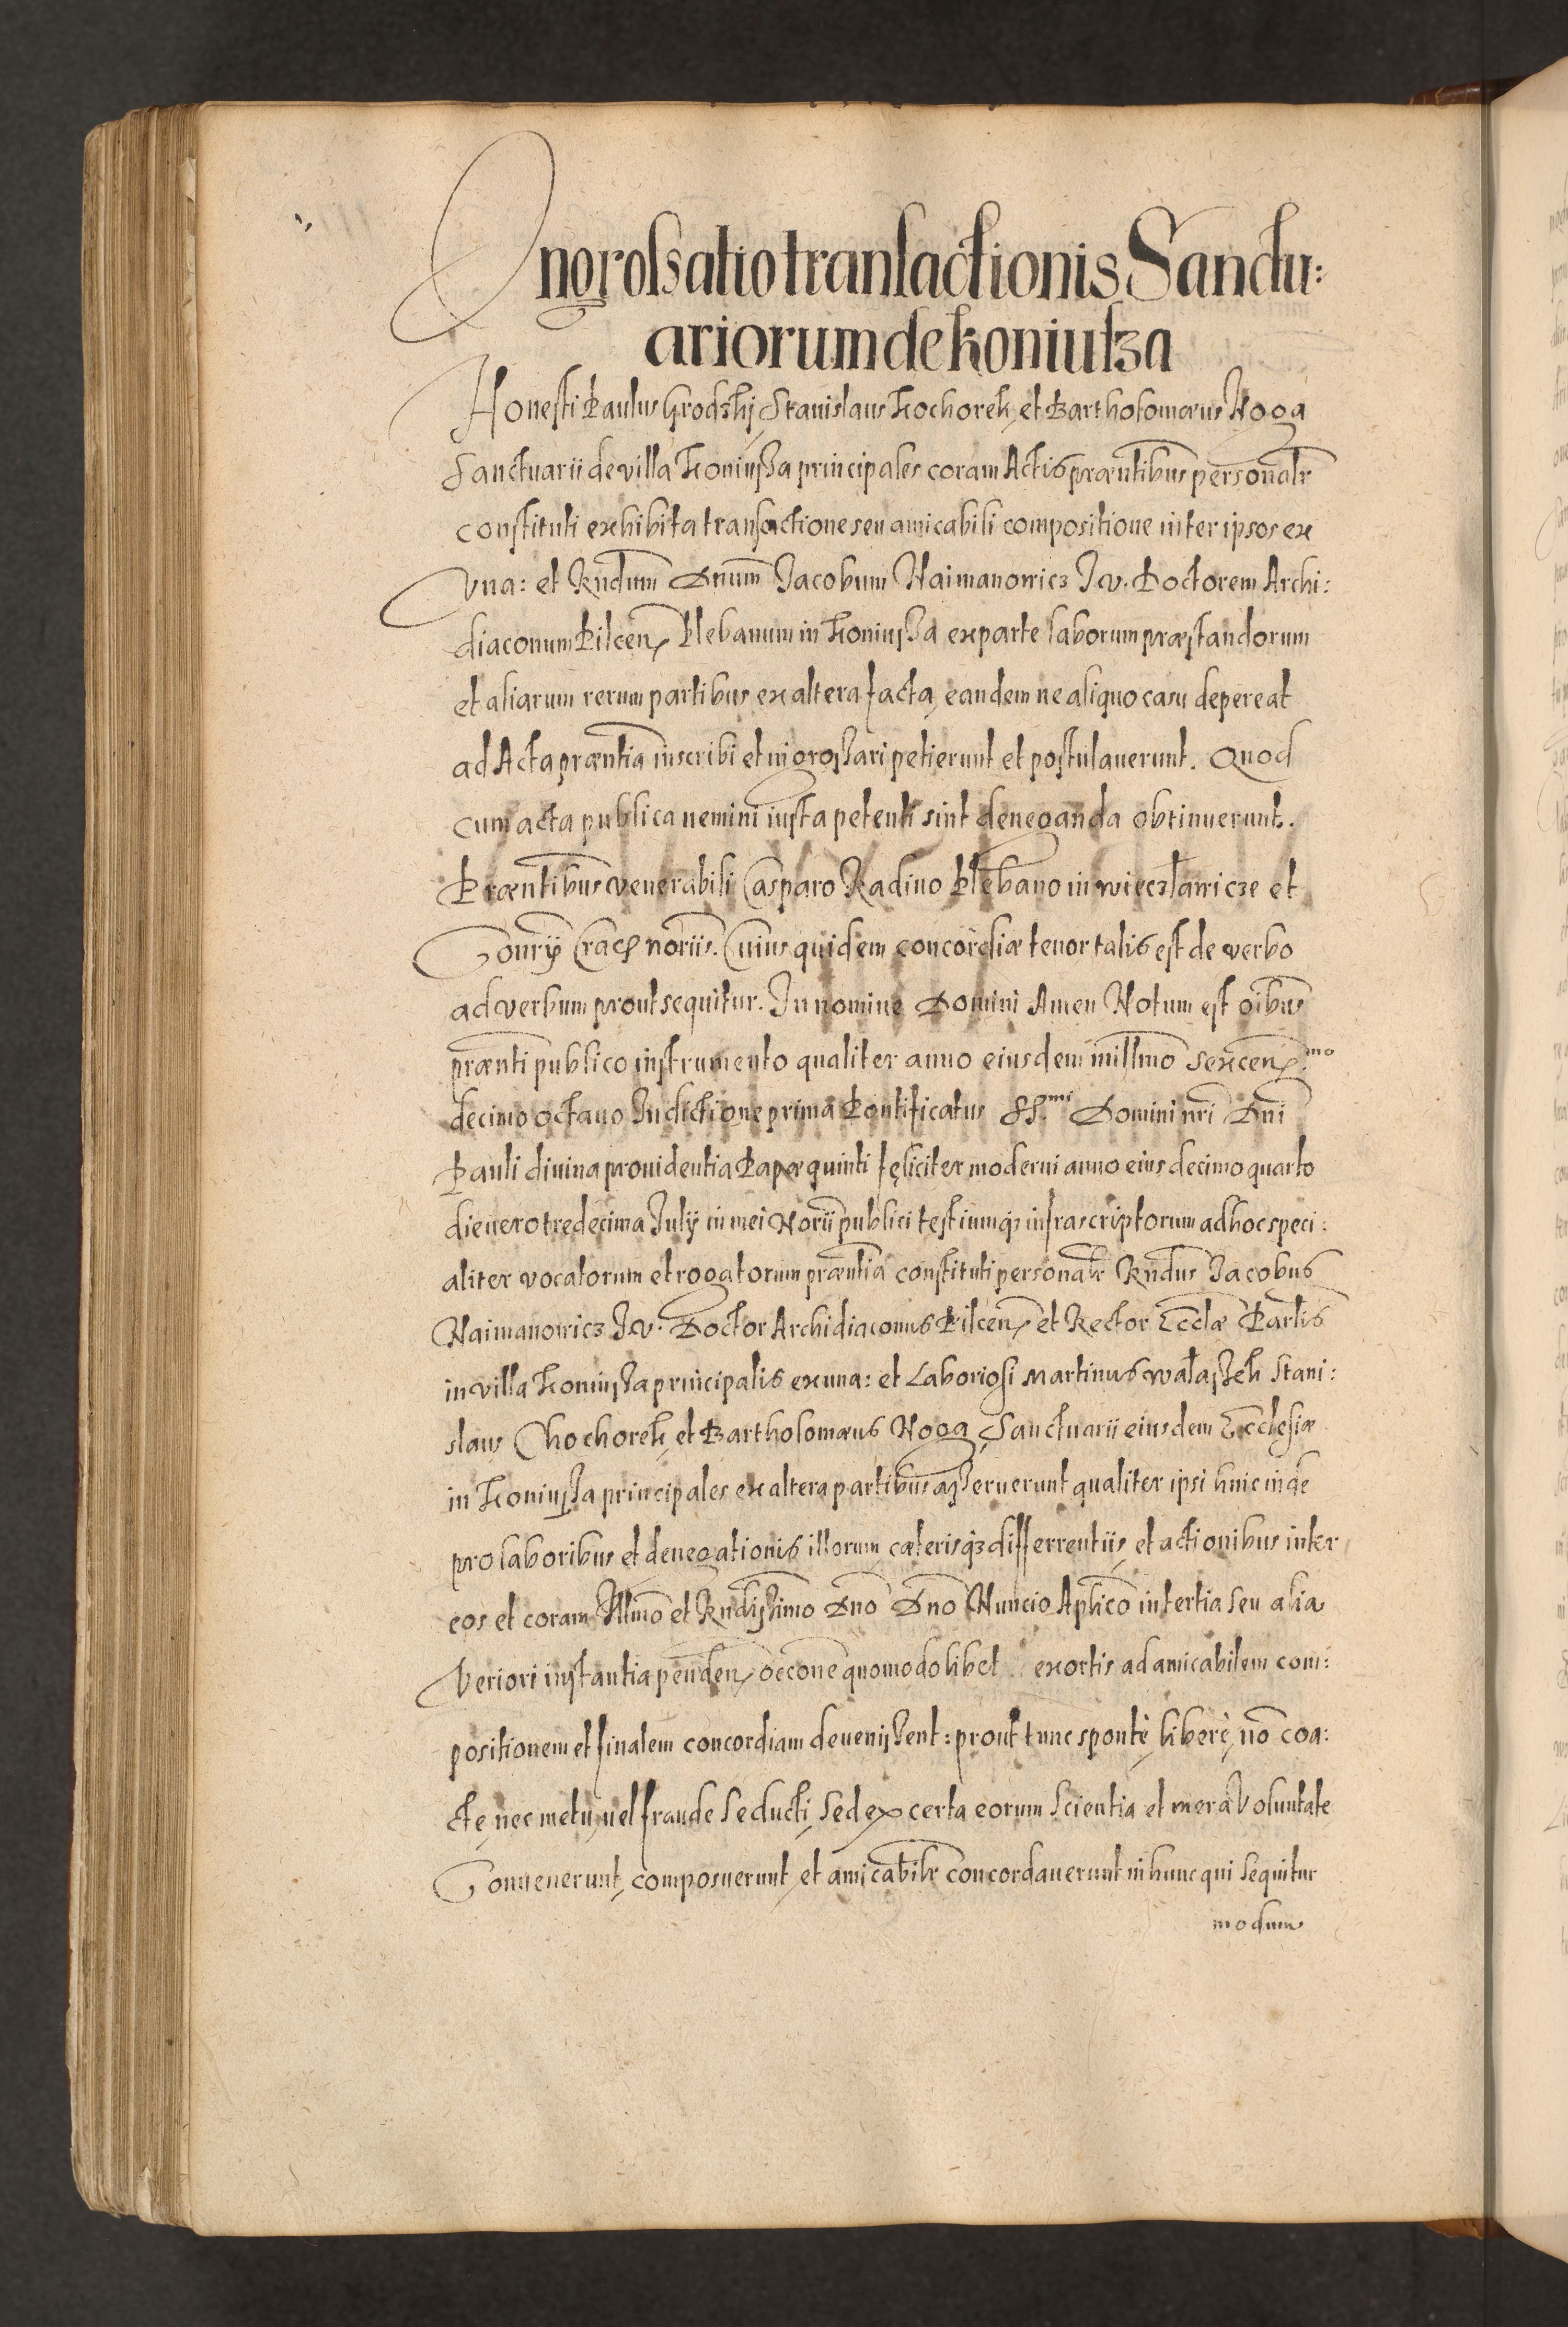 Ingrossatio transactionis Sanctu:
ariorum de Koniusza
Honesti Paulus Grodzkj, Stanislaus Kochorek, et Bartholomæus Noga
Sanctuarii de villa Koniussa principales coram Actis præntibus personalr
constituti exhibita transactione seu amicabili compositione inter ipsos ex
Vna: et Rndum Dnum Jacobum Naimanowicz J.V. Doctorem Archi:
diaconum Pilcen, Plebanum in Koniussa ex parte laborum præstandorum
et aliarum rerum partibus ex altera facta, eandem ne aliquo casu depereat
ad Acta præntia inscribi et ingrossari petierunt et postulauerunt. Quod
cum acta publica nemini iusta petenti sint deneganda obtinuerunt.
Præntibus venerabili Casparo Radino Plebano in Wieczławicze et
Conrÿ Crac noriis. Cuius quidem concordiæ tenor talis est de verbo
ad verbum prout sequitur. In nomine Domini Amen Notum est oibus
prænti publico instrumento qualiter anno eiusdem millmo sexcen.mo
decimo octauo Indictione prima Pontificatus SS.mi Domini nri Dni
Pauli diuina prouidentia Papæ quinti fęliciter moderni anno eius decimo quarto
die vero tredecima Julÿ in mei Norii publici testiumq3 infrascriptorum ad hoc speci:
aliter vocatorum et rogatorum præntia constituti personalr Rndus Jacobus
Naimanowicz J.V. Doctor Archidiaconus Pilcen, et Rector Ecclæ Parlis
in villa Koniussa principalis ex una: et Laboriosi Martinus Wałassek Stani:
slaus Chochorek, et Bartholomæus Noga, Sanctuarii eiusdem Ecclesiæ
in Koniussa principales ex altera partibus asseruerunt qualiter ipsi hinc inde
pro laboribus et denegationis illorum cæterisq3 differrentiis, et actionibus inter
eos et coram Illmo et Rndissimo Dno Dno Nuncio Aplico in tertia seu alia
Veriori instantia penden, occone quomodolibet exortis ad amicabilem com:
positionem et finalem concordiam deuenissent: prout tunc spontè, liberè, no coa:
cte, nec metu, uel fraude seducti, sed ex certa eorum scientia et mera Voluntate
Conuenerunt, composuerunt, et amicabilr concordauerunt in hunc qui sequitur
modum